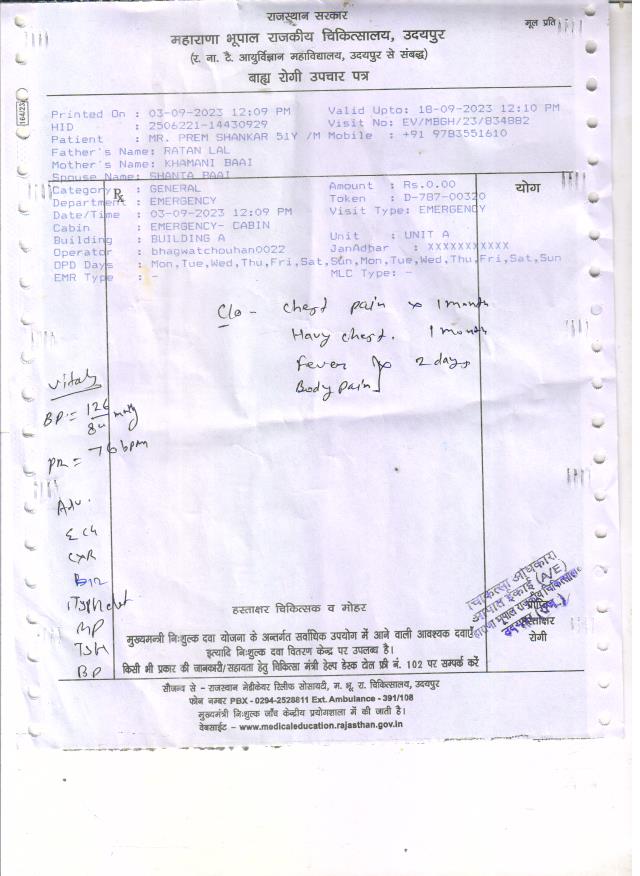 राजस्थान सरकार
मूल प्रति
महाराणा भूपाल राजकीय चिकित्सालय, उदयपुर
(र. ना. टै. आयुर्विज्ञान महाविद्यालय, उदयपुर से संबद्ध)
बाह्य रोगी उपचार पत्र
164/23
Printed On : 03-09-2023 12:09 PM Valid Upto: 18-09-2023 12:10 PM
HID : 2506221-14430929 Visit No: EV/MBGH/23/834882
Patient : MR. PREM SHANKAR 51Y /M Mobile : +91 9783551610
Father's Name: RATAN LAL
Mother's Name: KHAMANI BAAI
Spouse Name: SHANTA BAAI
Category : GENERAL Amount : Rs.0.00
Rx
योग
Department : EMERGENCY Token : D-787-00320
Date/Time : 03-09-2023 12:09 PM Visit Type: EMERGENCY
Cabin : EMERGENCY- CABIN
Building : BUILDING A Unit : UNIT A
Operator : bhagwatchouhan0022 JanAdhar : XXXXXXXXXXX
OPD Days : Mon,Tue,Wed,Thu,Fri,Sat,Sun,Mon,Tue,Wed,Thu,Fri,Sat,Sun
EMR Type : - MLC Type: -
C/o - chest pain x 1 month
Havy chest. 1 month
Fever x 2 days
Body pain
Vitals
BP = 126/84 mmHg
PR = 76 bpm
Adv.
ECG
CXR
B12
MP
TSH
BP
चिकित्सा अधिकारी
आपात ईकाई (A/E)
महाराणा भूपाल राजकीय चिकित्सालय
हस्ताक्षर चिकित्सक व मोहर
हस्ताक्षर
रोगी
मुख्यमन्त्री निःशुल्क दवा योजना के अन्तर्गत सर्वाधिक उपयोग में आने वाली आवश्यक दवाऐं
इत्यादि निःशुल्क दवा वितरण केन्द्र पर उपलब्ध है।
किसी भी प्रकार की जानकारी/सहायता हेतु चिकित्सा मंत्री हेल्प डेस्क टोल फ्री नं. 102 पर सम्पर्क करें
सौजन्य से - राजस्थान मेडीकेयर रिलीफ सोसायटी, म. भू. रा. चिकित्सालय, उदयपुर
फोन नम्बर PBX - 0294-2528811 Ext. Ambulance - 391/108
मुख्यमंत्री निःशुल्क जाँच केन्द्रीय प्रयोगशाला में की जाती है।
वेबसाईट - www.medicaleducation.rajasthan.gov.in